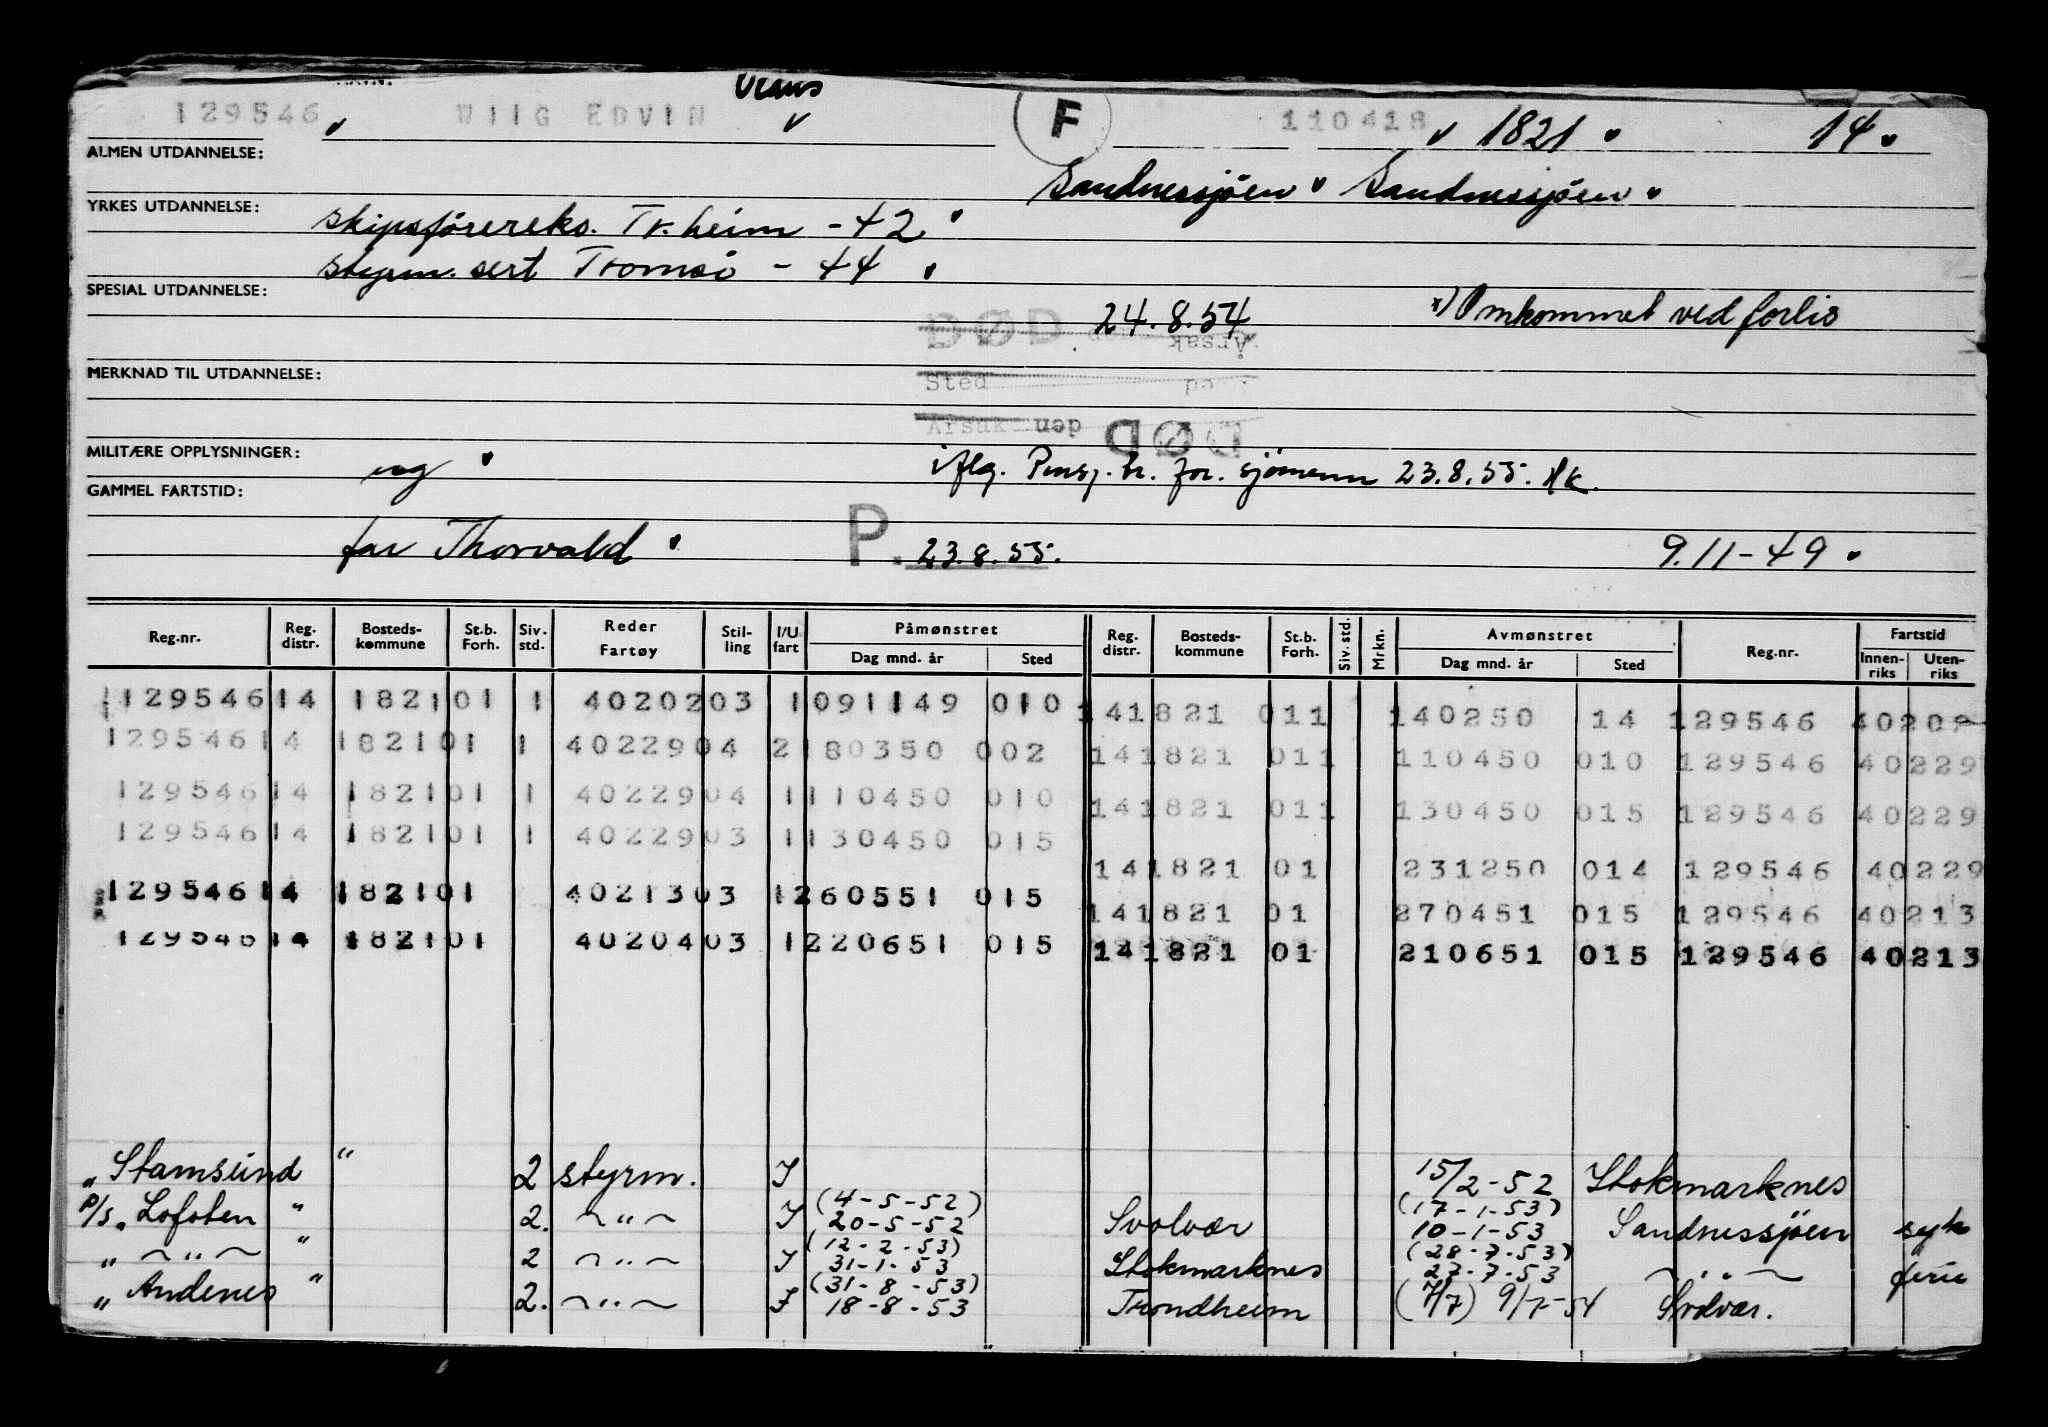 129546 WIIG EDVIN Claus F 110418 1821 14
ALMEN UTDANNELSE:
Sandnessjöen Sandnessjöen
YRKES UTDANNELSE: skipsförereks. Tr.heim - 42
styrm. sert Tromsö - 44
SPESIAL UTDANNELSE:
DØD 24.8.54 x) Omkommet ved forlis
Årsak
MERKNAD TIL UTDANNELSE:
Sted på
Årsak den DØD
MILITÆRE OPPLYSNINGER: ug iflg. Pensj. tr. for. sjömenn 23.8.55. Hk.
GAMMEL FARTSTID:
far Thorvald P. 23.8.55. 9.11-49
Reg.nr. Reg. distr. Bosteds- kommune St.b. Forh. Siv. std. Reder Fartøy Stil- ling I/U fart Påmønstret Dag mnd. år Sted Reg. distr. Bosteds- kommune St.b. Forh. Siv. std. Mrkn. Avmønstret Dag mnd. år Sted Reg.nr. Fartstid Innen- riks Uten- riks
129546 14 1821 01 1 40202 03 1 091149 010 14 1821 01 1 140250 14 129546 40202
129546 14 1821 01 1 40229 04 2 180350 002 14 1821 01 1 110450 010 129546 40229
129546 14 1821 01 1 40229 04 1 110450 010 14 1821 01 1 130450 015 129546 40229
129546 14 1821 01 1 40229 03 1 130450 015 14 1821 01 231250 014 129546 40229
129546 14 1821 01 40213 03 1 260551 015 14 1821 01 270451 015 129546 40213
129546 14 1821 01 40204 03 1 220651 015 14 1821 01 210651 015 129546 40213
" Stamsund " 2 styrm. I 15/2-52 Stokmarknes
P/S " Lofoten " 2. ~"~ I (4-5-52) 20-5-52 Svolvær (17-1-53) 10-1-53 Sandnessjöen syk
" ~"~ " 2 ~"~ I (12-2-53) 31-1-53 Stokmarknes (28-7-53) 27-7-53 ~"~ ferie
" Andenes " 2. ~"~ I (31-8-53) 18-8-53 Trondheim (7/7) 9/7-54 Svolvær.